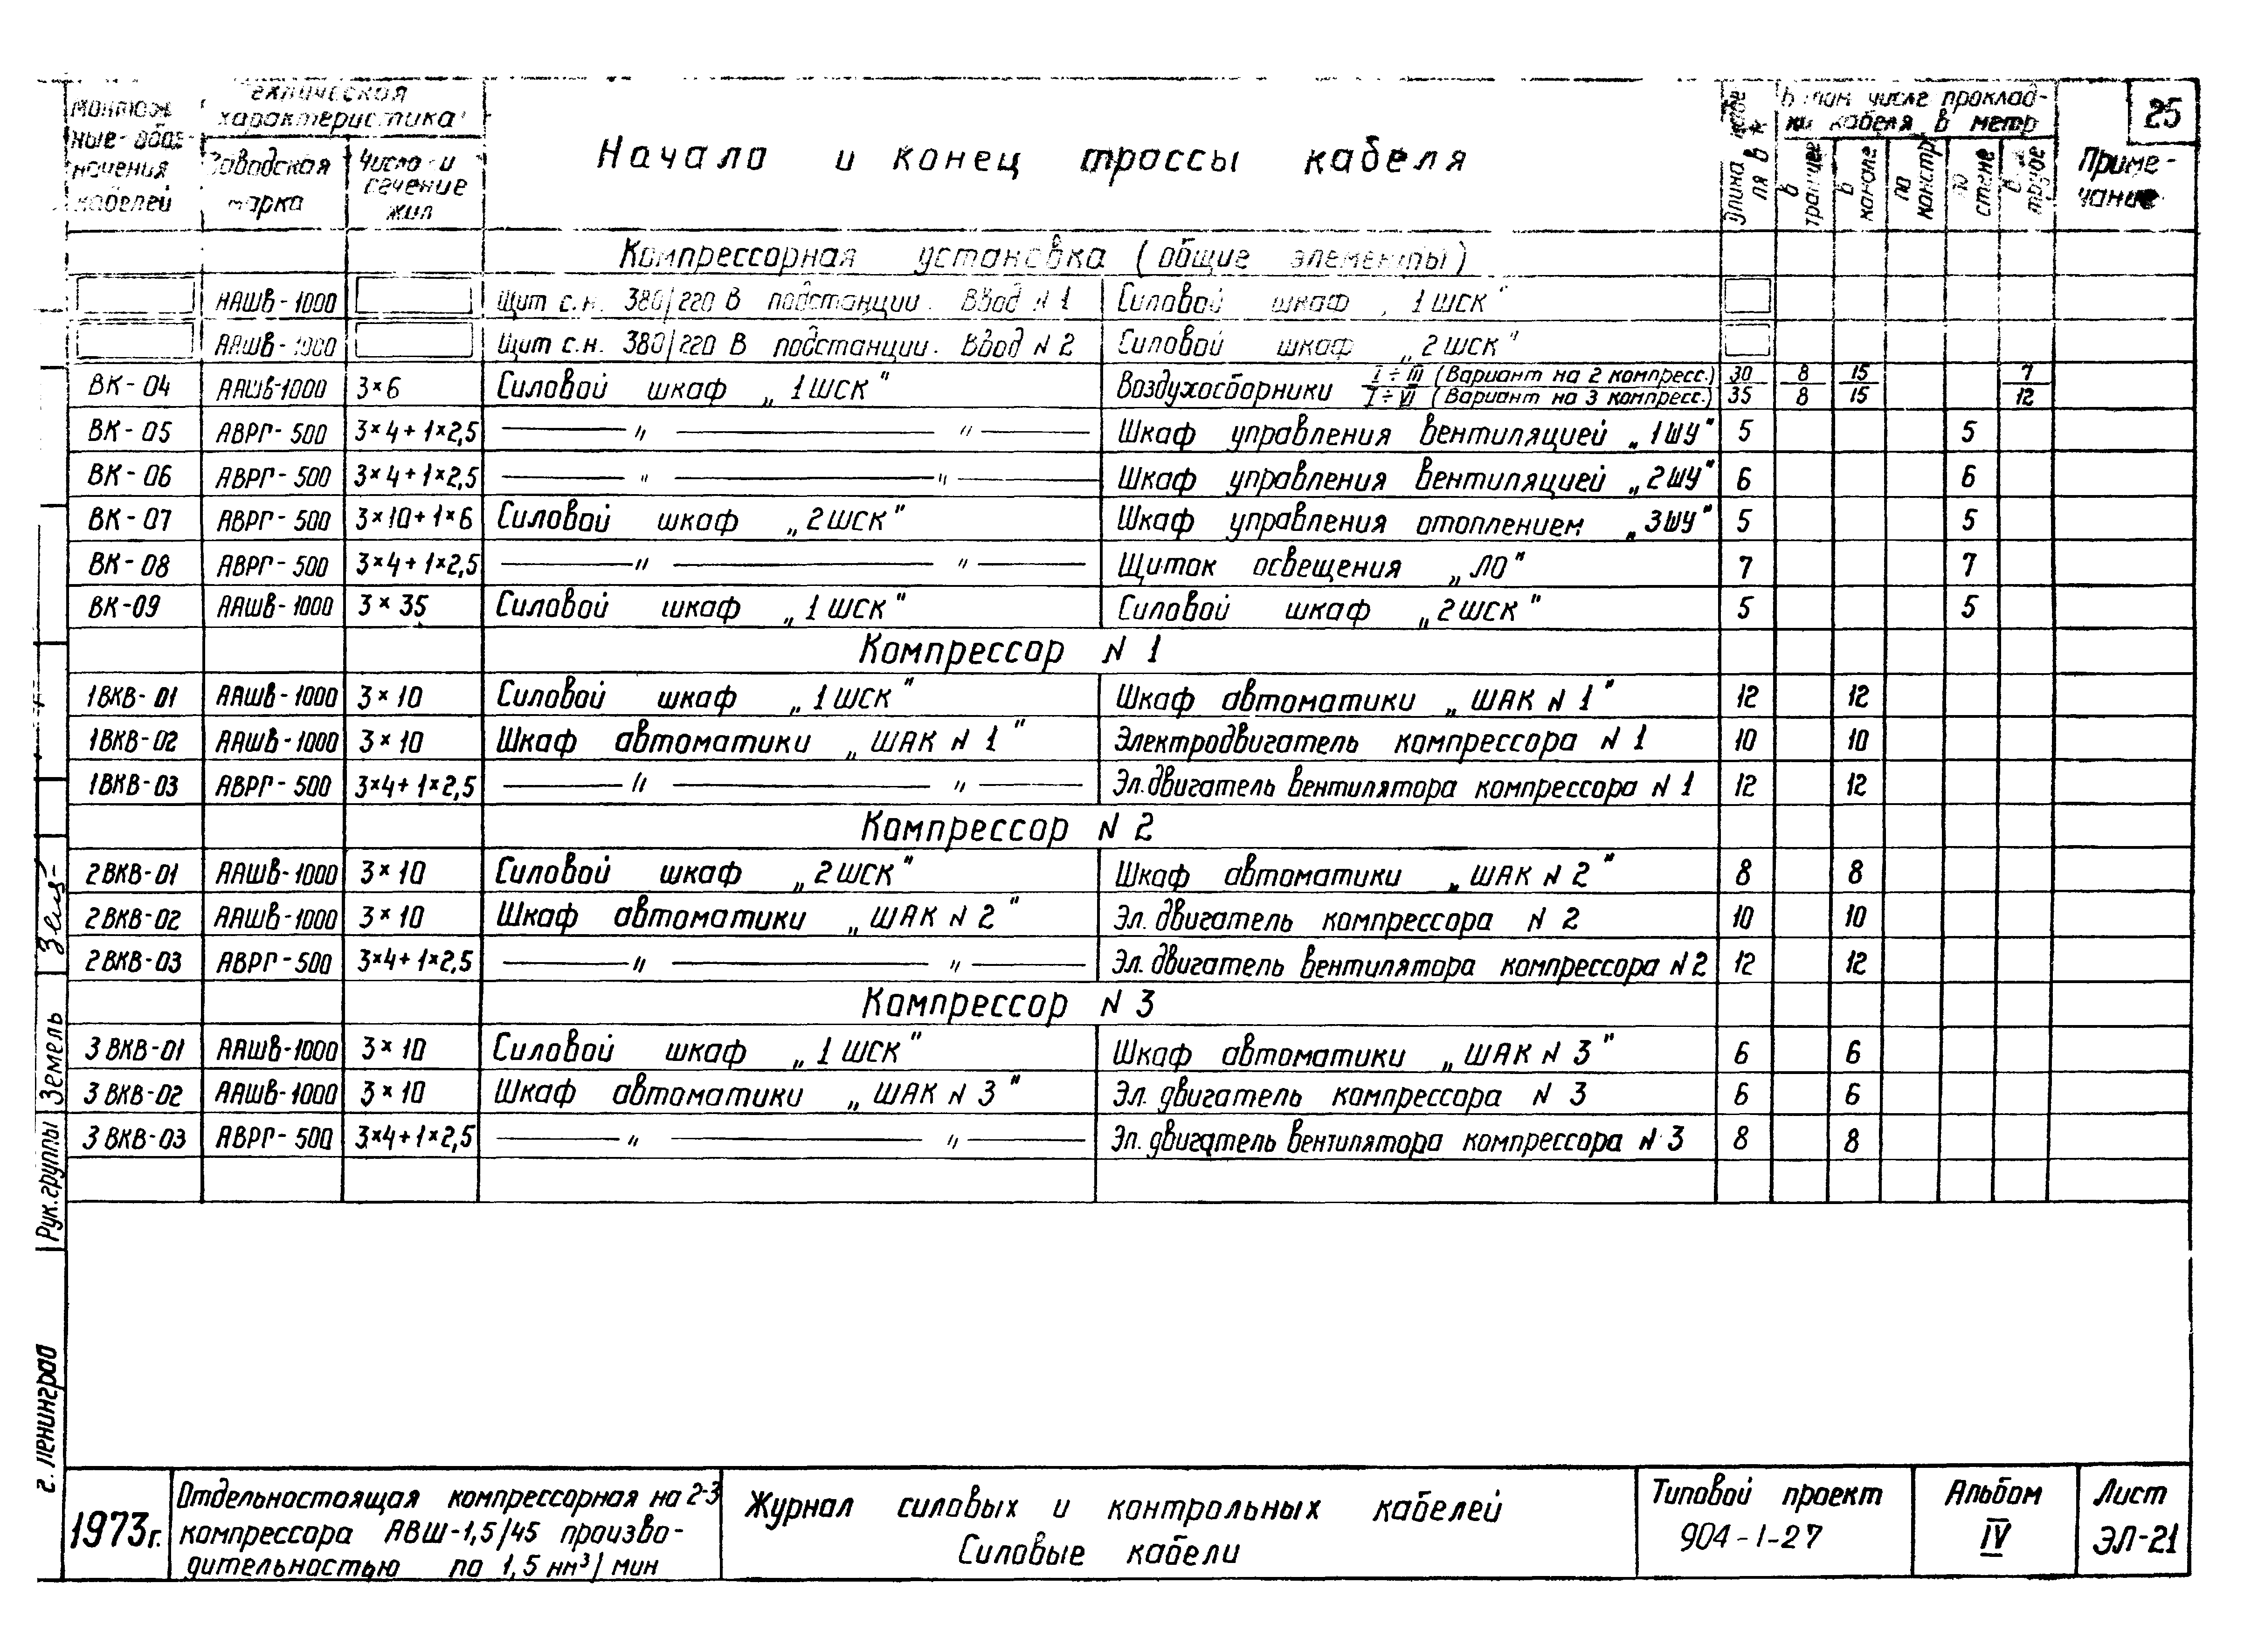 25
Монтаж-
ные обоз-
начения
кабелей
Техническая
характеристика
Заводская
марка
Число и
сечение
жил
Начало и конец трассы кабеля
Длина кабе-
ля в м
В том числе проклад-
ки кабеля в метр
в траншее
в канале
по констр.
по стене
в трубе
Приме-
чание
Компрессорная установка (общие элементы)
ААШВ-1000 Щит с.н. 380/220 В подстанции. Ввод N 1 Силовой шкаф „1ШСК"
ААШВ-1000 Щит с.н. 380/220 В подстанции. Ввод N 2 Силовой шкаф „2ШСК"
ВК-04 ААШВ-1000 3×6 Силовой шкаф „1ШСК" Воздухосборники I÷III (Вариант на 2 компресс.) 30 8 15 7
I÷VI (Вариант на 3 компресс.) 35 8 15 12
ВК-05 АВРГ-500 3×4+1×2,5 —"— —"— Шкаф управления вентиляцией „1ШУ" 5 5
ВК-06 АВРГ-500 3×4+1×2,5 —"— —"— Шкаф управления вентиляцией „2ШУ" 6 6
ВК-07 АВРГ-500 3×10+1×6 Силовой шкаф „2ШСК" Шкаф управления отоплением „3ШУ" 5 5
ВК-08 АВРГ-500 3×4+1×2,5 —"— —"— Щиток освещения „ЛО" 7 7
ВК-09 ААШВ-1000 3×35 Силовой шкаф „1ШСК" Силовой шкаф „2ШСК" 5 5
Компрессор N 1
1ВКВ-01 ААШВ-1000 3×10 Силовой шкаф „1ШСК" Шкаф автоматики „ШАК N 1" 12 12
1ВКВ-02 ААШВ-1000 3×10 Шкаф автоматики „ШАК N 1" Электродвигатель компрессора N 1 10 10
1ВКВ-03 АВРГ-500 3×4+1×2,5 —"— —"— Эл.двигатель вентилятора компрессора N 1 12 12
Компрессор N 2
2ВКВ-01 ААШВ-1000 3×10 Силовой шкаф „2ШСК" Шкаф автоматики „ШАК N 2" 8 8
2ВКВ-02 ААШВ-1000 3×10 Шкаф автоматики „ШАК N 2" Эл. двигатель компрессора N 2 10 10
2ВКВ-03 АВРГ-500 3×4+1×2,5 —"— —"— Эл. двигатель вентилятора компрессора N 2 12 12
Компрессор N 3
3ВКВ-01 ААШВ-1000 3×10 Силовой шкаф „1ШСК" Шкаф автоматики „ШАК N 3" 6 6
3ВКВ-02 ААШВ-1000 3×10 Шкаф автоматики „ШАК N 3" Эл. двигатель компрессора N 3 6 6
3ВКВ-03 АВРГ-500 3×4+1×2,5 —"— —"— Эл. двигатель вентилятора компрессора N 3 8 8
Рук. группы Земель
г. Ленинград
1973г.
Отдельностоящая компрессорная на 2-3
компрессора АВШ-1,5/45 произво-
дительностью по 1,5 нм³/мин
Журнал силовых и контрольных кабелей
Силовые кабели
Типовой проект
904-1-27
Альбом
IV
Лист
ЭЛ-21